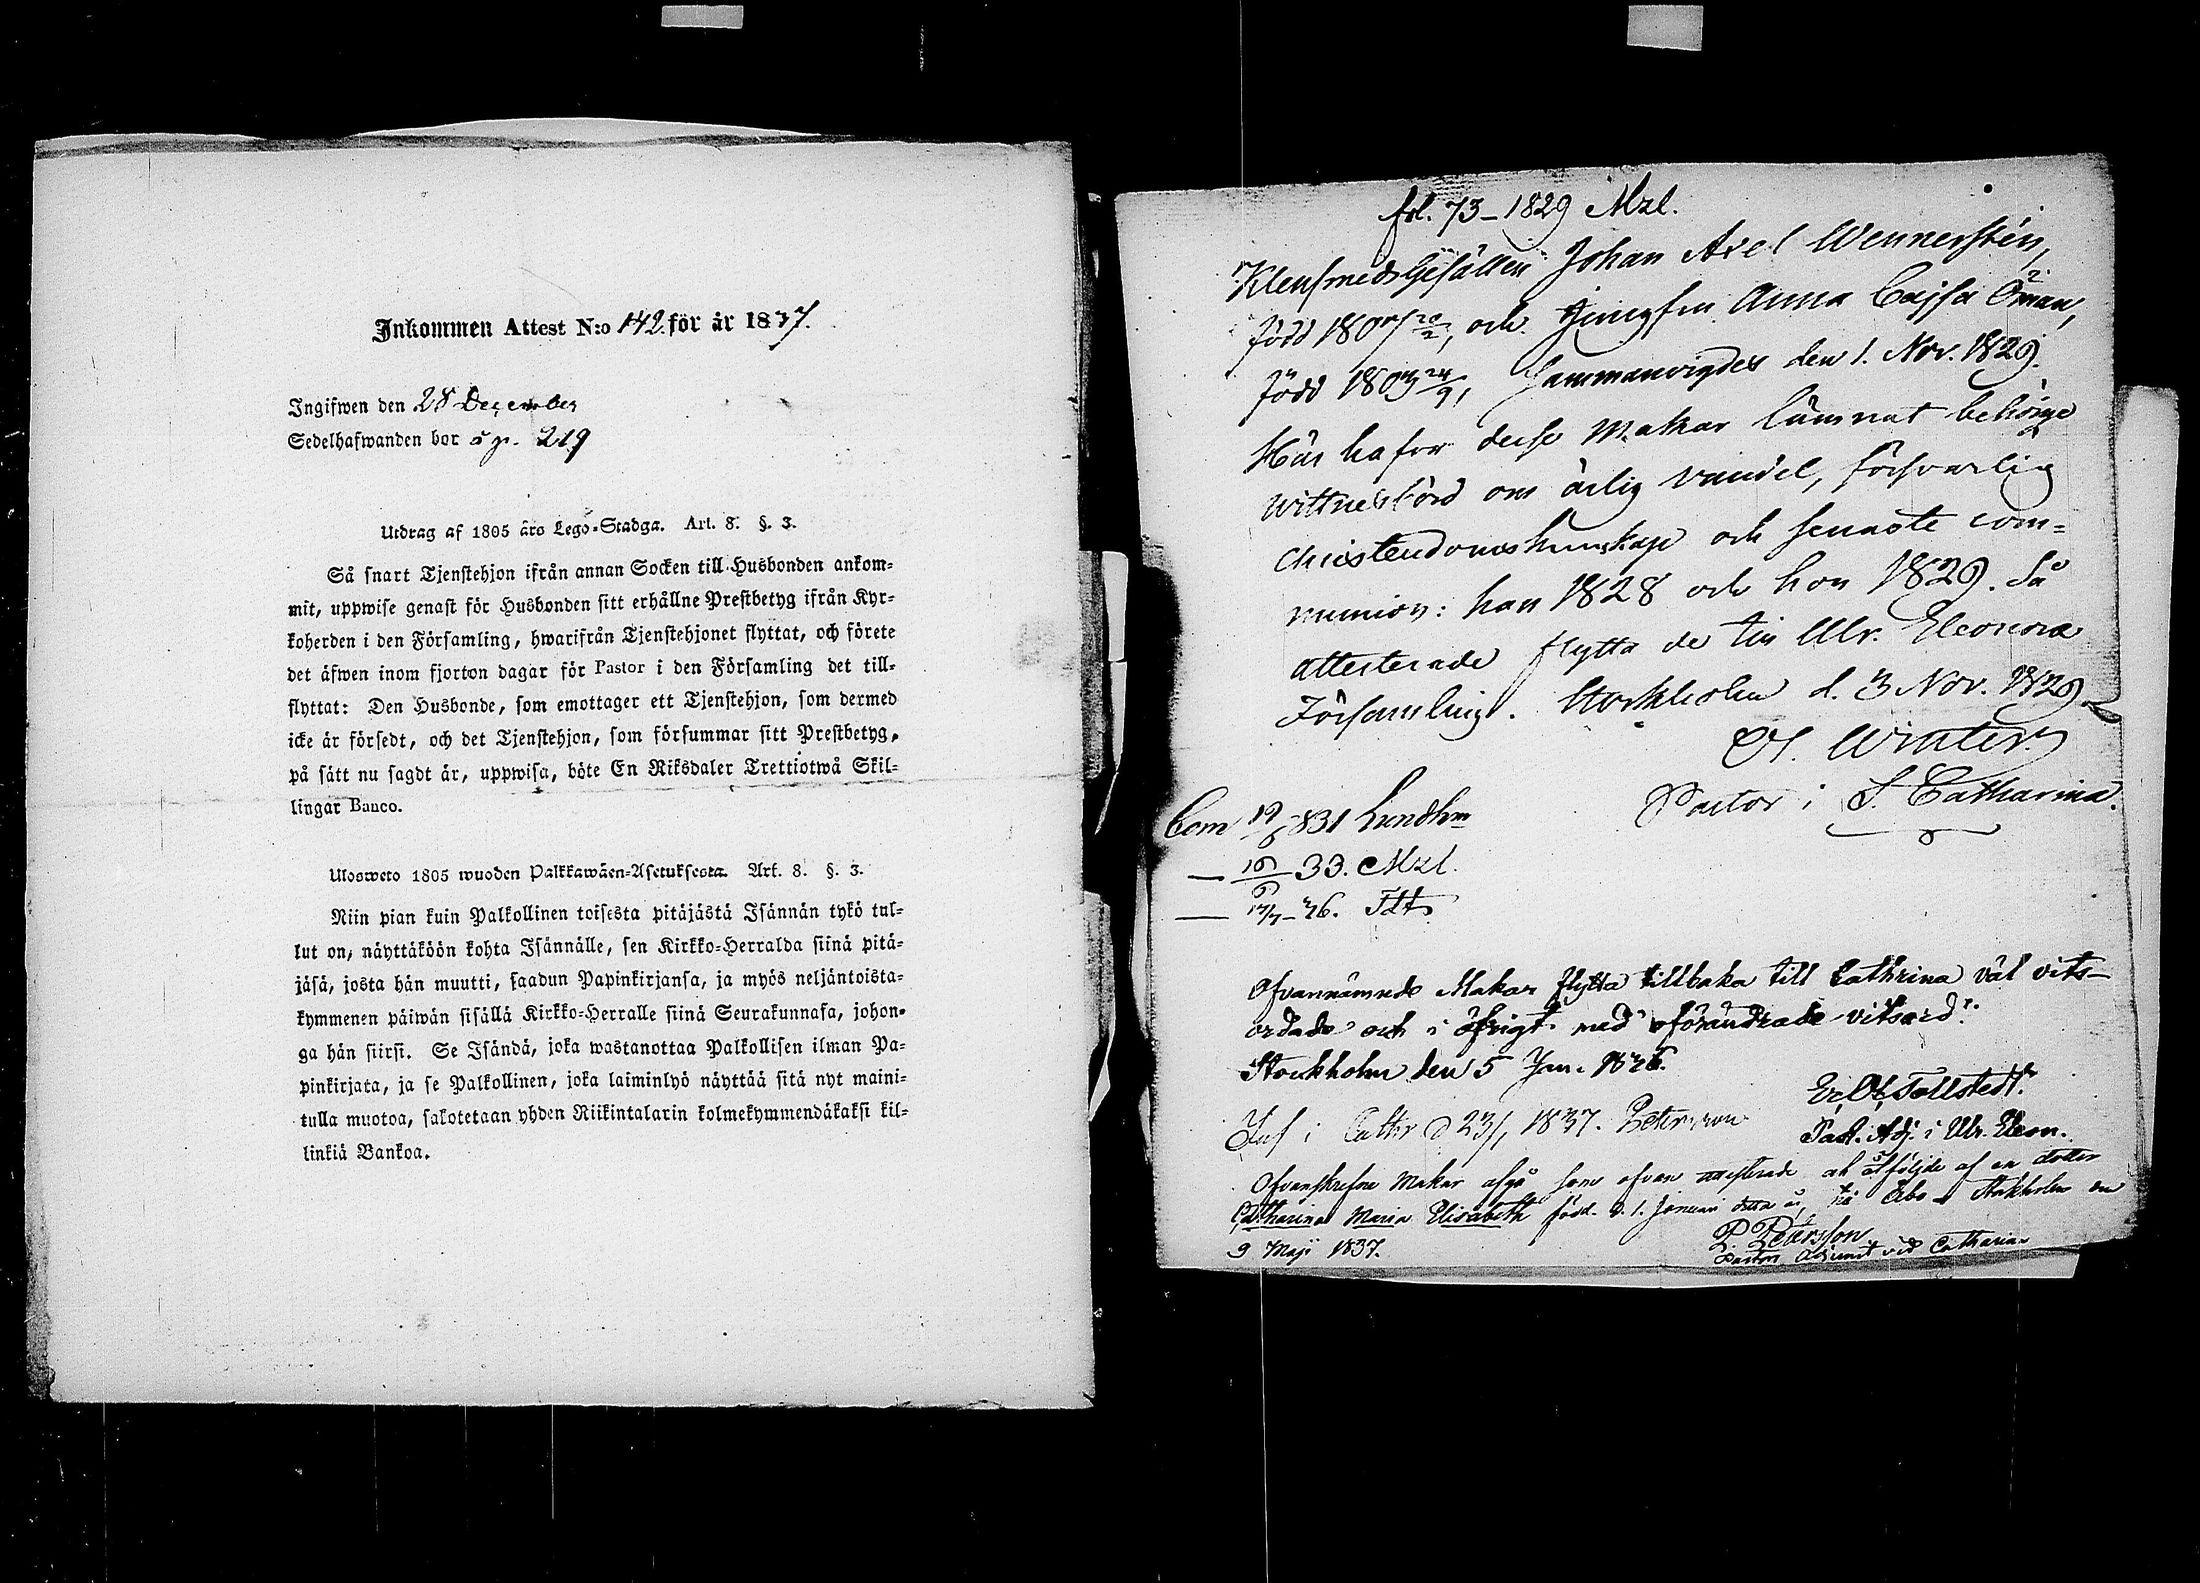 Inkommen Attest N:o 142. för år 1837.
Ingifwen den 28 December
Sedelhafwanden bor 219
Utdrag af 1805 års Lego-Stadga. Art. 8. §. 3.
Så snart Tjenstehjon ifrån annan Socken till Husbonden ankom-
mit, uppwise genast för Husbonden sitt erhållne Prestbetyg ifrån Kyr-
koherden i den Församling, hwarifrån Tjenstehjonet flyttat, och förete
det äfwen inom fjorton dagar för Pastor i den Församling det till-
flyttat: Den Husbonde, som emottager ett Tjenstehjon, som dermed
icke är försedt, och det Tjenstehjon, som försummar sitt Prestbetyg,
på sätt nu sagdt är, uppwisa, böte En Riksdaler Trettiotwå Skil-
lingar Banco.
Ulosweto 1805 wuoden Palkkawäen-Asetuksesta. Art. 8. §. 3.
Niin pian kuin Palkollinen toisesta pitäjästä Isännän tykö tul-
lut on, näyttäköön kohta Isännälle, sen Kirkko-Herralda siinä pitä-
jäsä, josta hän muutti, saadun Papinkirjansa, ja myös neljäntoista-
kymmenen päiwän sisällä Kirkko-Herralle siinä Seurakunnasa, johon-
ga hän siirsi. Se Isändä, joka wastanottaa Palkollisen ilman Pa-
pinkirjata, ja se Palkollinen, joka laiminlyö näyttää sitä nyt maini-
tulla muotoa, sakotetaan yhden Riikintalarin kolmekymmendäkaksi kil-
linkiä Bankoa.
fol. 73 - 1829 Mzl.
Klensmedsgesällen Johan Axel Wennerstén,
född 1807 20/2, och Jungfru Anna Cajsa Öman,
född 1803 24/9, sammanvigdes den 1. Nov. 1829.
Här hafva desse makar lämnat behörige
wittnesbörd om ärlig vandel, försvarlig
christendomskunskap och senaste com-
munion: han 1828 och hon 1829. Så
attesterade flytta de till Ulr. Eleonora
Församling. Stockholm d. 3 Nov. 1829.
Winter
Pastor i S. Catharina.
Com 19/6 831 Lundhm
— 16/6 33. Mzl.
— 17/7 - 36. Tdt
Ofvannämnde Makar flytta tillbaka till Cathrina väl vits-
ordade och i öfrigt med oförändrade vitsord.
Stockholm den 5 Jan. 1836.
Tollstedt.
Past. Adj. i Ulr. Eleon.
i Cathr d 23/1 1837. Petersson
Ofvanskrefne Makar afgå som ofvan attesterade att åtföljde af en dotter
Catharina Maria Elisabeth född d. 1. Januari detta år, till Åbo. Stockholm den
9 Maji 1837.
P Petersson
Pastors Adjunct vid Catharina